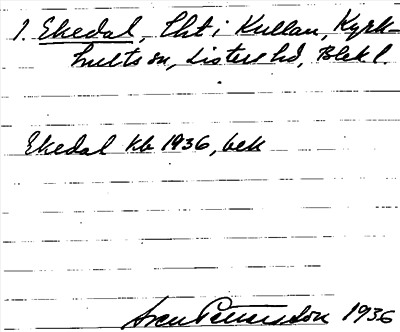 1. Ekedal, Lht i Kullan, Kyrk-
hults sn, Listers hd, Blek l.
Ekedal kb 1936, bek
Sven Pettersson 1936